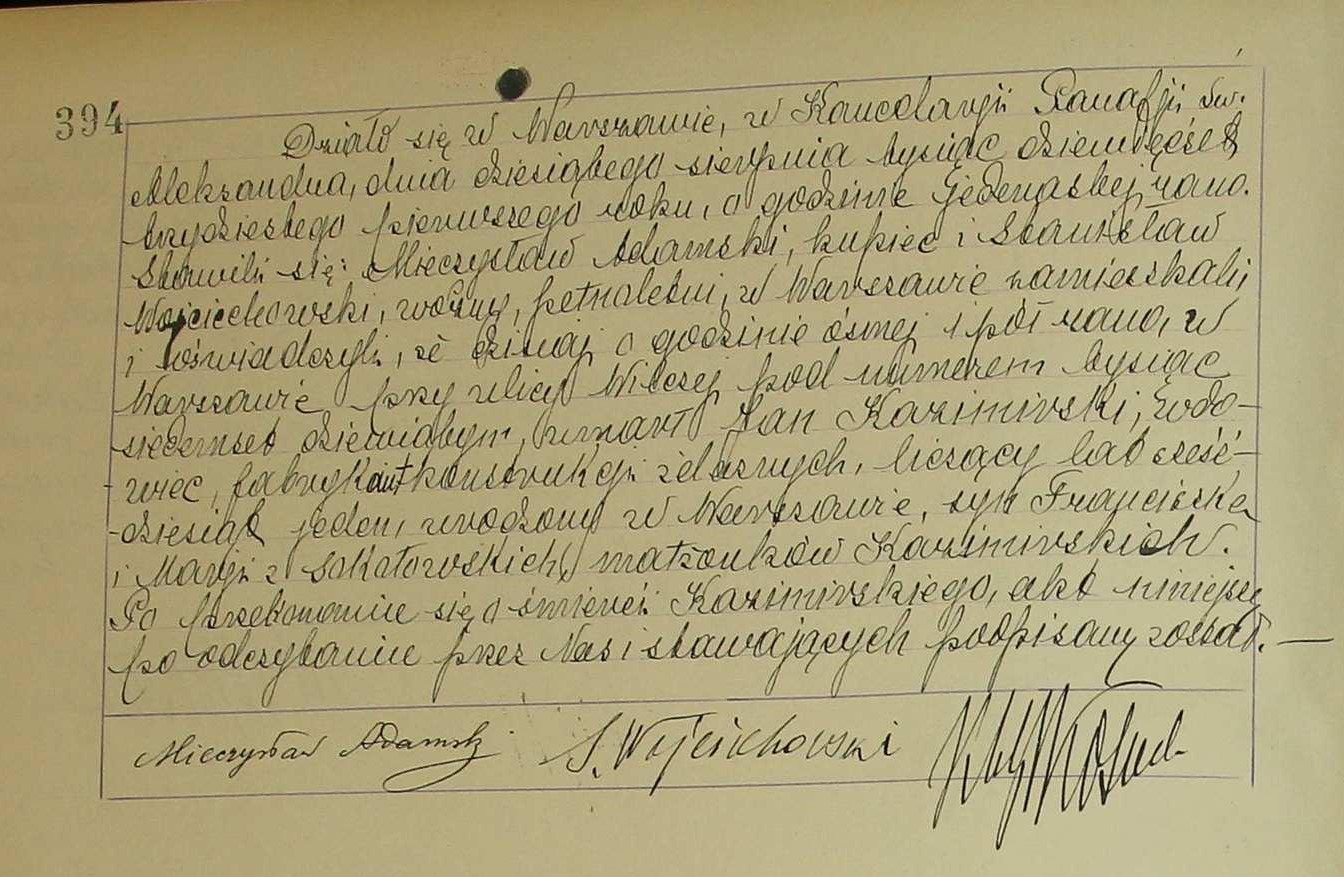 394
Działo się w Warszawie, w Kancelaryji Parafji św.
Aleksandra, dnia dziesiątego sierpnia tysiąc dziewięćset
trzydziestego pierwszego roku, o godzinie jedenastej rano.
Stawili się: Mieczysław Adamski, kupiec i Stanisław
Wojciechowski, woźny, pełnoletni, w Warszawie zamieszkali
i oświadczyli, że dzisiaj o godzinie ósmej i pół rano, w
Warszawie przy ulicy Wilczej pod numerem tysiąc
siedemset dziewiątym, umarł Jan Kazimirski, wdo-
wiec, fabrykant konstrukcji żelaznych, liczący lat sześć-
-dziesiąt jeden, urodzony w Warszawie, syn Franciszka
i Maryi z Sokołowskich, małżonków Kazimirskich.
Po przekonaniu się o śmierci Kazimirskiego, akt niniejszy
po odczytaniu przez Nas i stawających podpisany został.
Mieczysław Adamski S. Wojciechowski